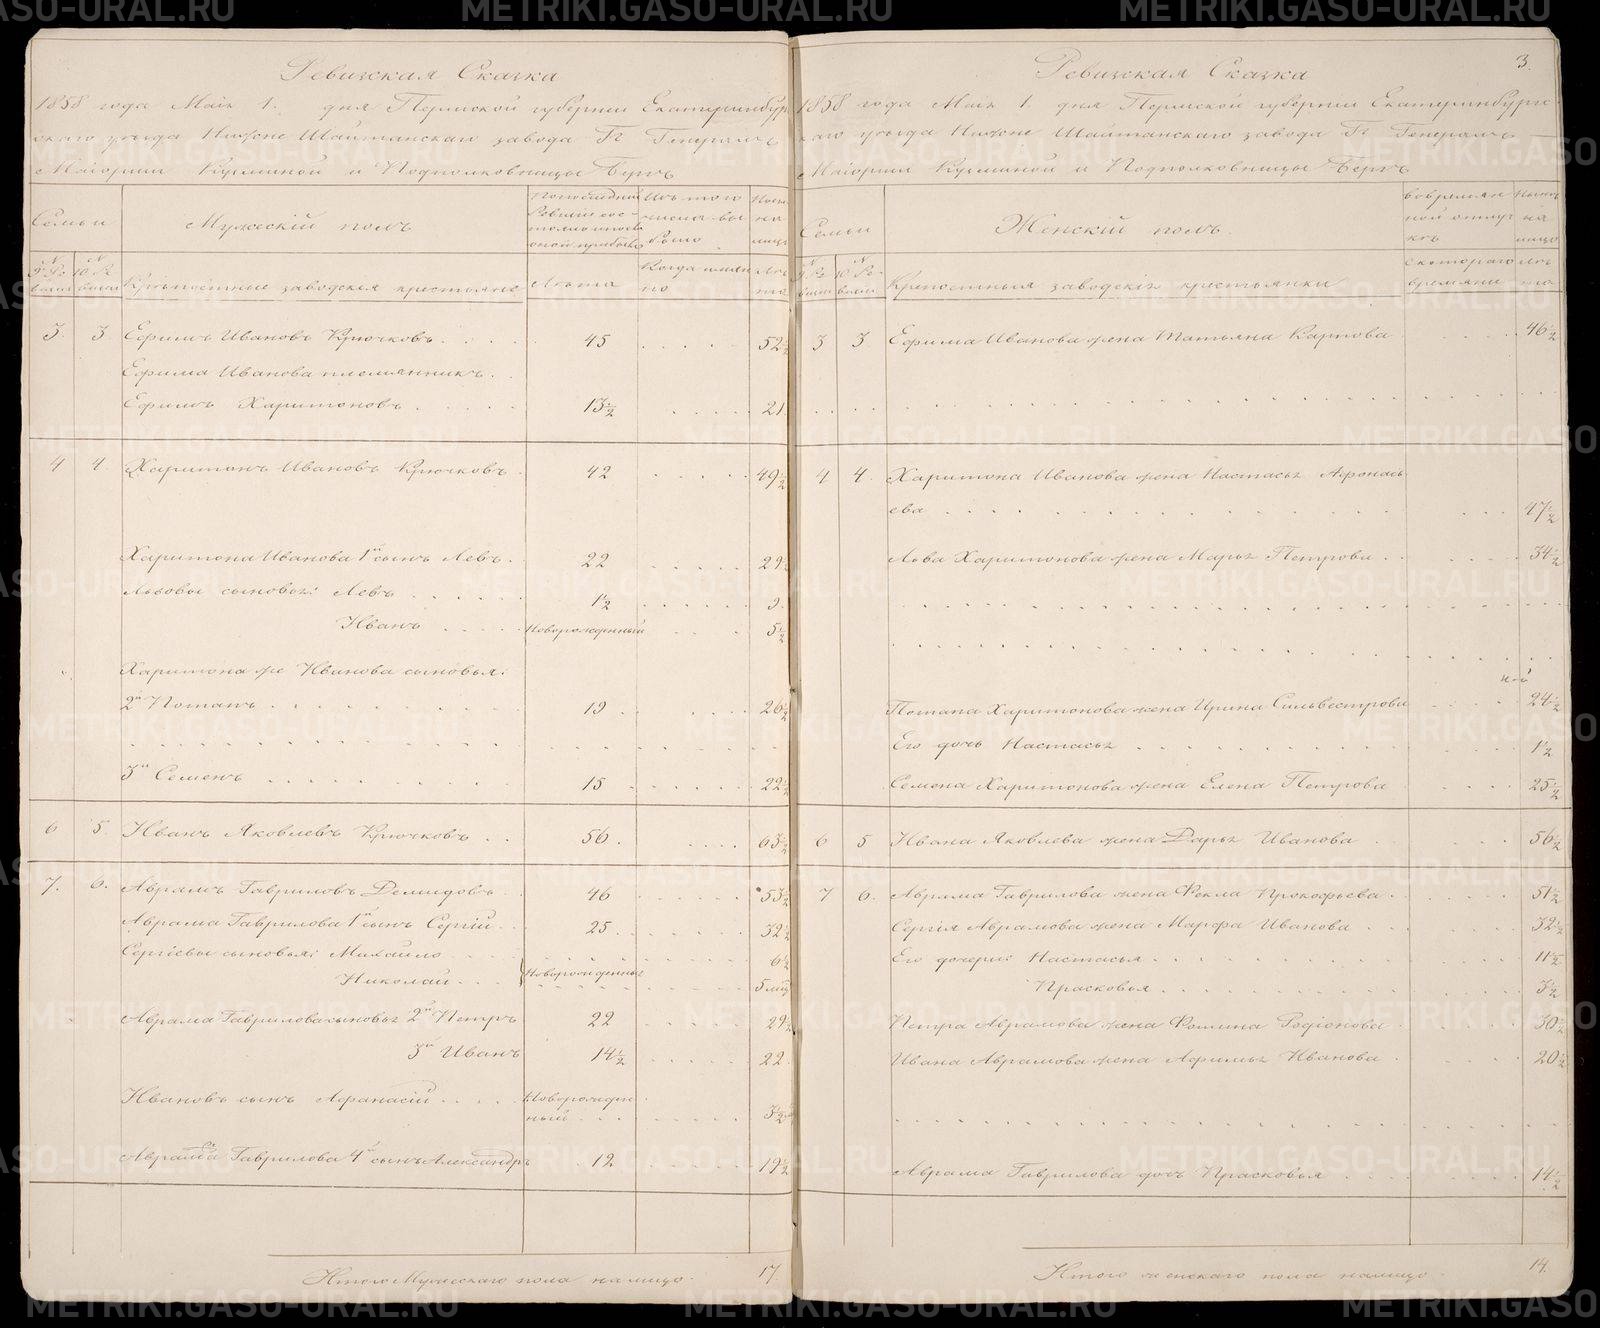 Ревизская Сказка
1858 года Маія 1. дня Пермской губерніи Екатеринбург
скаго уѣзда Нижне Шайтанскаго завода Гг Генералъ
Маіорши Кузминой и Подполковницы Бергъ
Семьи
Мужескій полъ
Изъ того
числа вы
было
Нынѣ
на
лицо
№ 9 Ре
визіи
№ 10 Ре
визіи
Крѣпостные заводскія крестьяне
Лѣта
Когда имян
но
Лѣ
та
3. 3. Ефимъ Ивановъ Крючковъ 45 52½
Ефима Иванова племянникъ
Ефимъ Харитоновъ 13½ 21
4 4. Харитонъ Ивановъ Крючковъ 42 49½
Харитона Иванова 1й сынъ Левъ 22 29½
Львовы сыновья: Левъ 1½ 9
Иванъ Новорожденный 5½
Харитона же Иванова сыновья:
2й Потапъ 19 26½
3й Семенъ 15 22½
6 5 Иванъ Яковлевъ Крючковъ 56 63½
7. 6. Аврамъ Гавриловъ Демидовъ 46 53½
Аврама Гаврилова 1й сынъ Сергій 25 32½
Сергіевы сыновья: Михайло 6½
Николай Новорожденные 5 мѣц
Аврама Гаврилова сыновья 2й Петръ 22 29½
3й Иванъ 14½ 22
Ивановъ сынъ Афанасій Новорожден
ный 3½
Аврама Гаврилова 4й сынъ Александръ 12 19½
Итого Мужескаго пола налицо 17.
3.
Ревизская Сказка
1858 года Маія 1. дня Пермской губерніи Екатеринбург
скаго уѣзда Нижне Шайтанскаго завода Гг Генералъ
Маіорши Кузминой и Подполковницы Бергъ
Семьи
Женскій полъ.
Во времян
ной отлуч
кѣ
Нынѣ
на
лицо
№ 9 Ре
визіи
№ 10 Ре
визіи
Крепостныя заводскія крестьянки
Съ котораго
времяни
Лѣ
та
3 3. Ефима Иванова жена Татьяна Карпова 46½
4 4. Харитона Иванова жена Настасья Афонась
ева 47½
Льва Харитонова жена Марья Петрова 34½
Потапа Харитонова жена Ирина Сильвестрова 24½
Его дочь Настасья 1½
Семена Харитонова жена Елена Петрова 25½
6 5 Ивана Яковлева жена Дарья Иванова 56½
7 6. Аврама Гаврилова жена Фекла Прокофьева 51½
Сергія Аврамова жена Марфа Иванова 32½
Его дочери: Настасья 11½
Прасковья 3½
Петра Аврамова жена Фотина Родіонова 30½
Ивана Аврамова жена Афимья Иванова 20½
Аврама Гаврилова дочь Прасковья 14½
Итого женскаго пола налицо 14.
METRIKI.GASO-URAL.RU